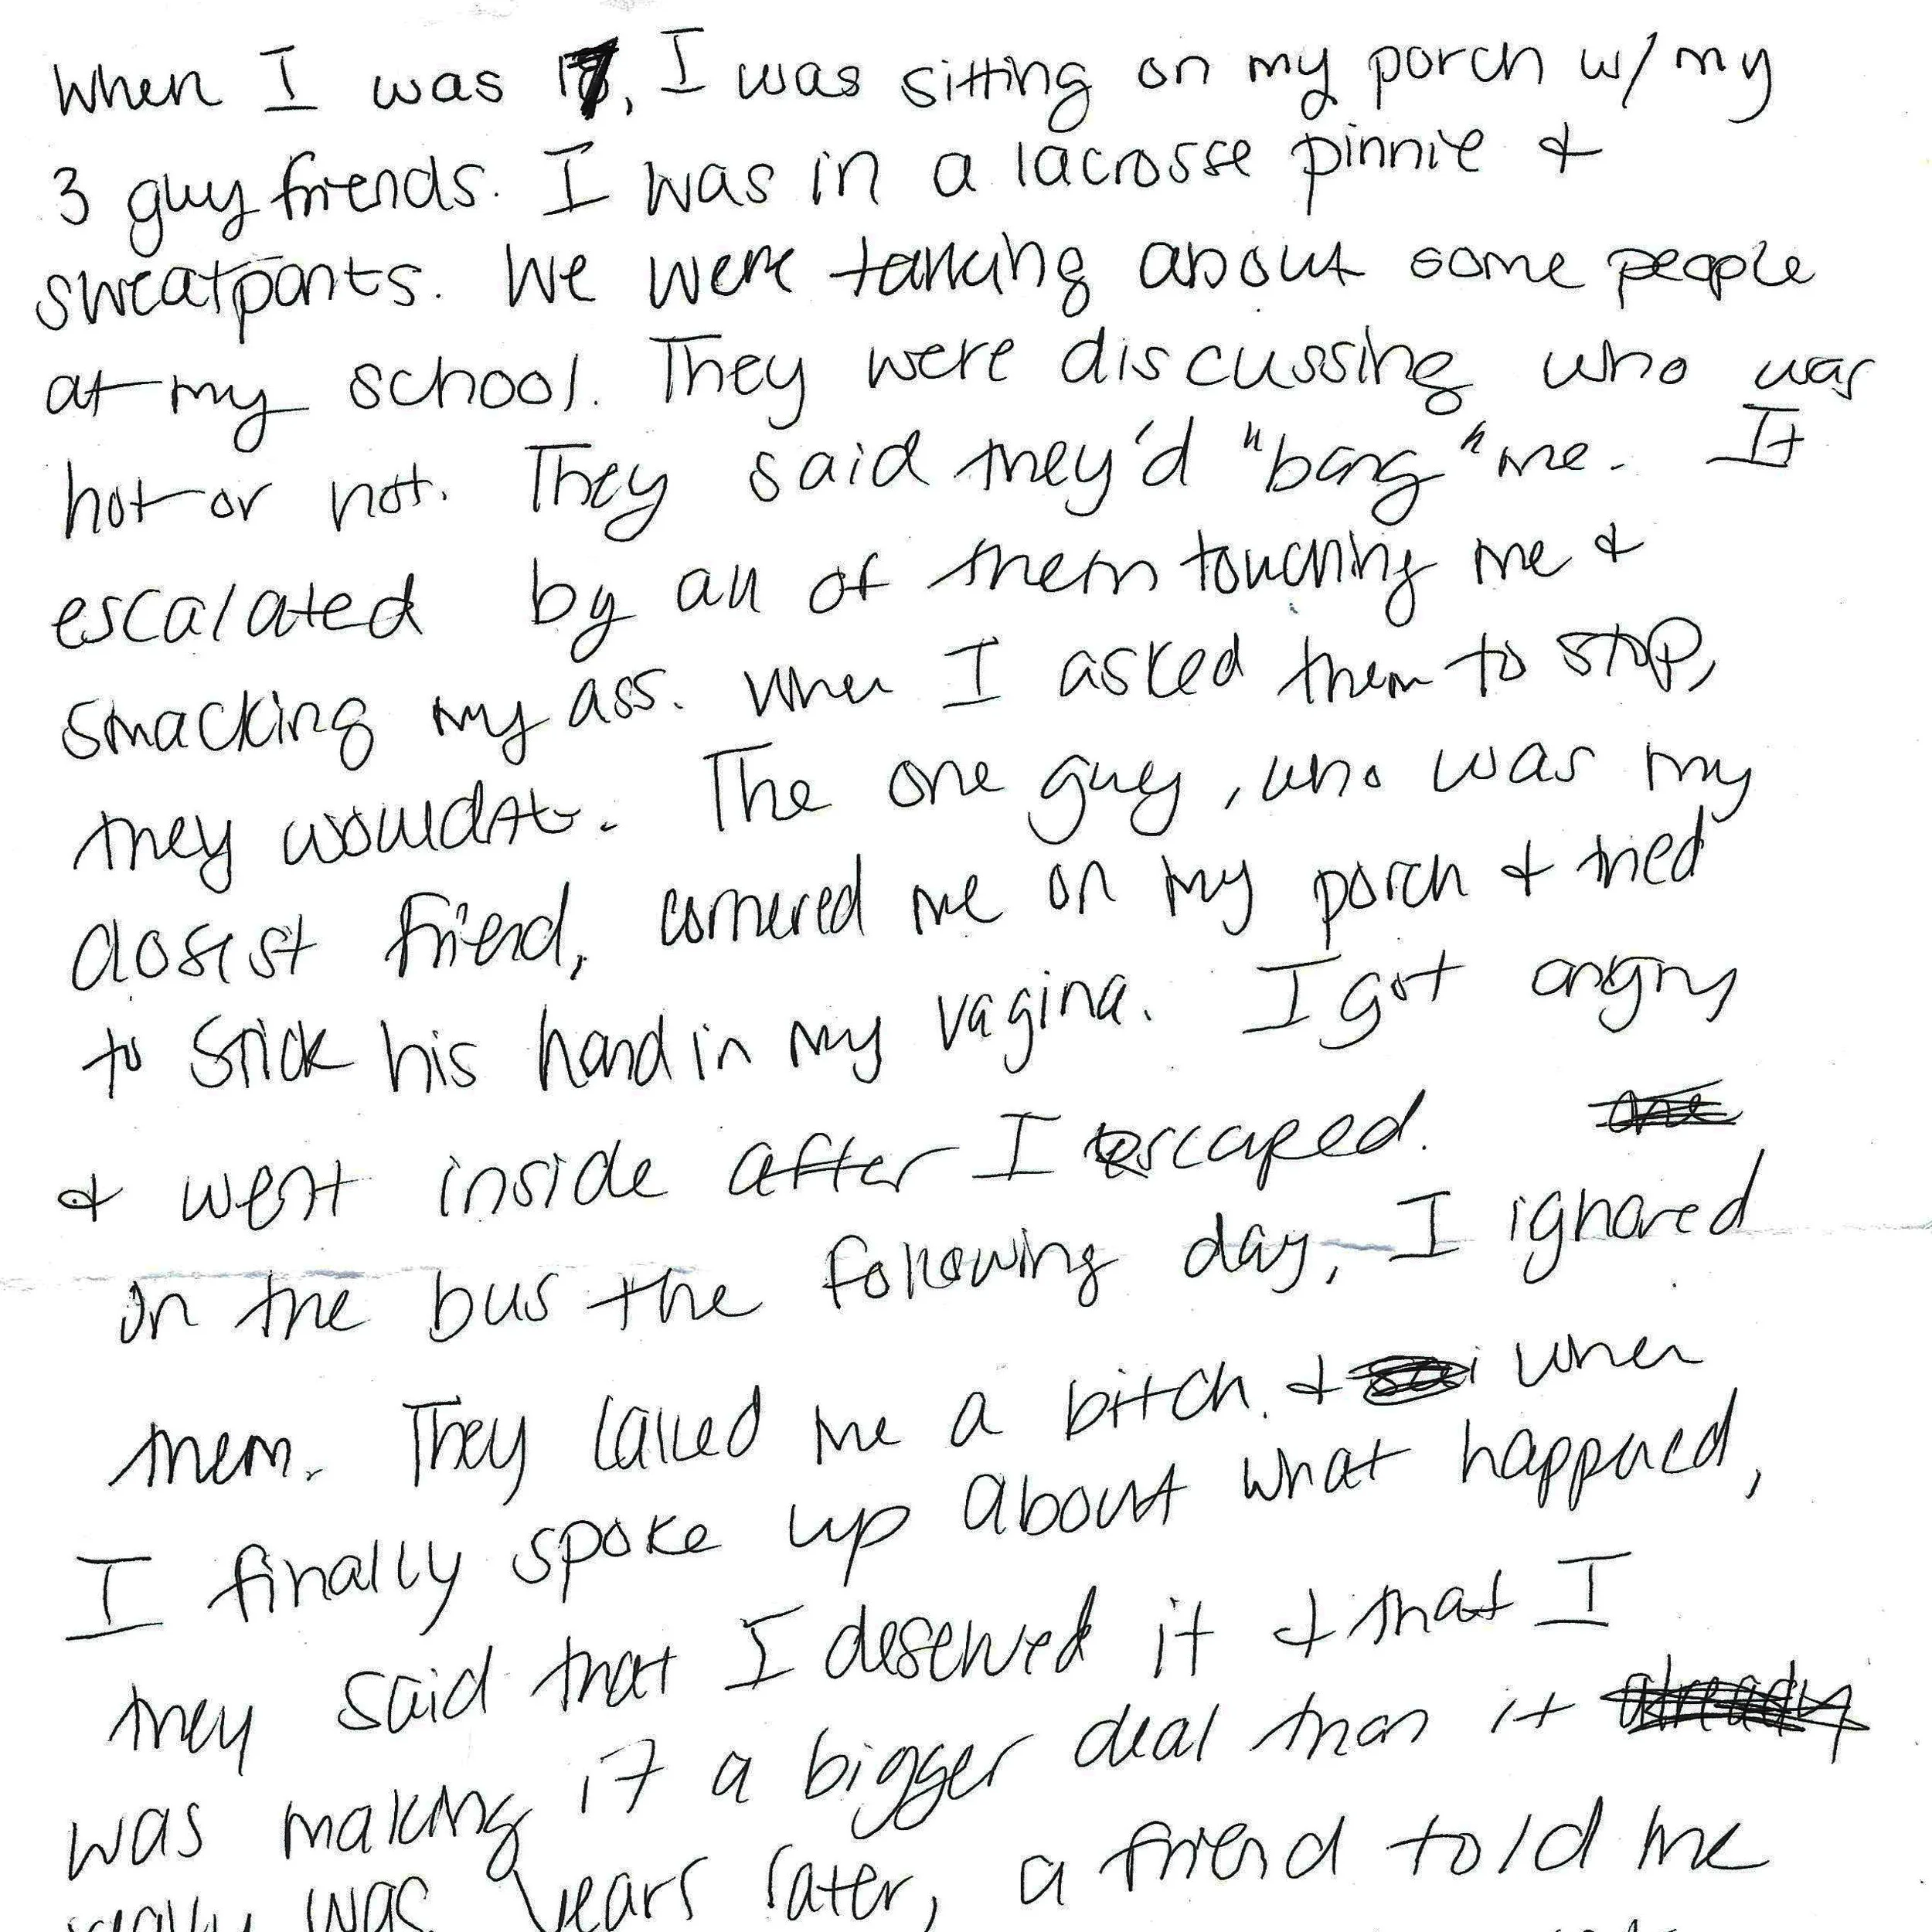 When I was 17, I was sitting on my porch w/ my
3 guy friends. I was in a lacrosse pinnie &
sweatpants. We were talking about some people
at my school. They were discussing who was
hot or not. They said they'd "bang" me. It
escalated by all of them touching me &
smacking my ass. When I asked them to stop,
they wouldnt. The one guy, who was my
closest friend, cornered me on my porch & tried
to stick his hand in my vagina. I got angry
& went inside after I escaped.
on the bus the following day, I ignored
them. They called me a bitch. & when
I finally spoke up about what happened,
they said that I deserved it & that I
was making it a bigger deal than it already
really was. Years later, a friend told me